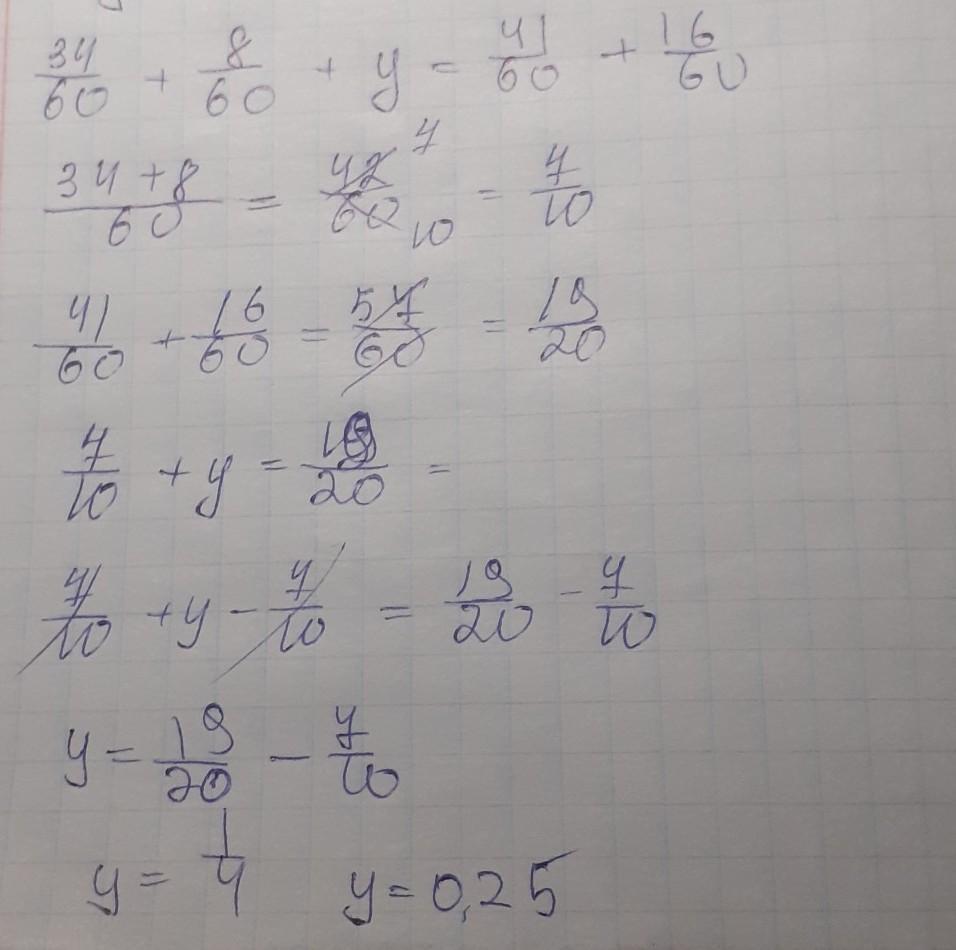 34/60 + 8/60 + y = 41/60 + 16/60
34+8/60 = 42/60 7 10 = 7/10
41/60 + 16/60 = 57/60 = 19/20
7/10 + y = 19/20 =
7/10 + y - 7/10 = 19/20 - 7/10
y = 19/20 - 7/10
y = 1/4 y = 0,25